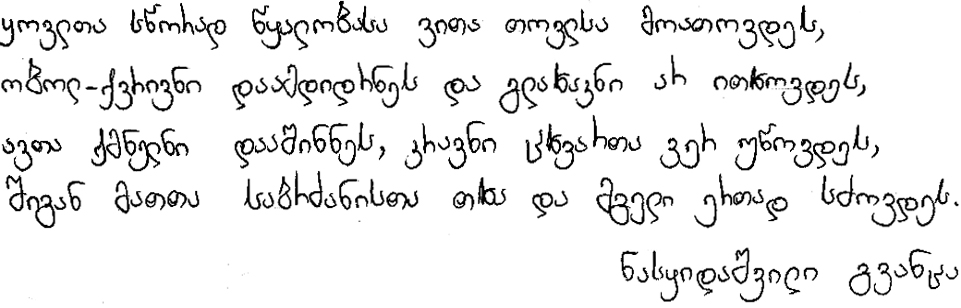 ყოველთა სწორად წყალობასა ვითა თოვლსა მოათოვდეს,
ობოლ-ქვრივნი დაამდიდრნეს და გლახაკნი არ ითხოვდეს,
ავთა ქმნელნი დააშინნეს, კრავნი ცხვართა ვერ უწოვდეს,
შიგან მათთა საბრძანისთა თხა და მგელი ერთად სძოვდეს.
ნასყიდაშვილი გვანცა